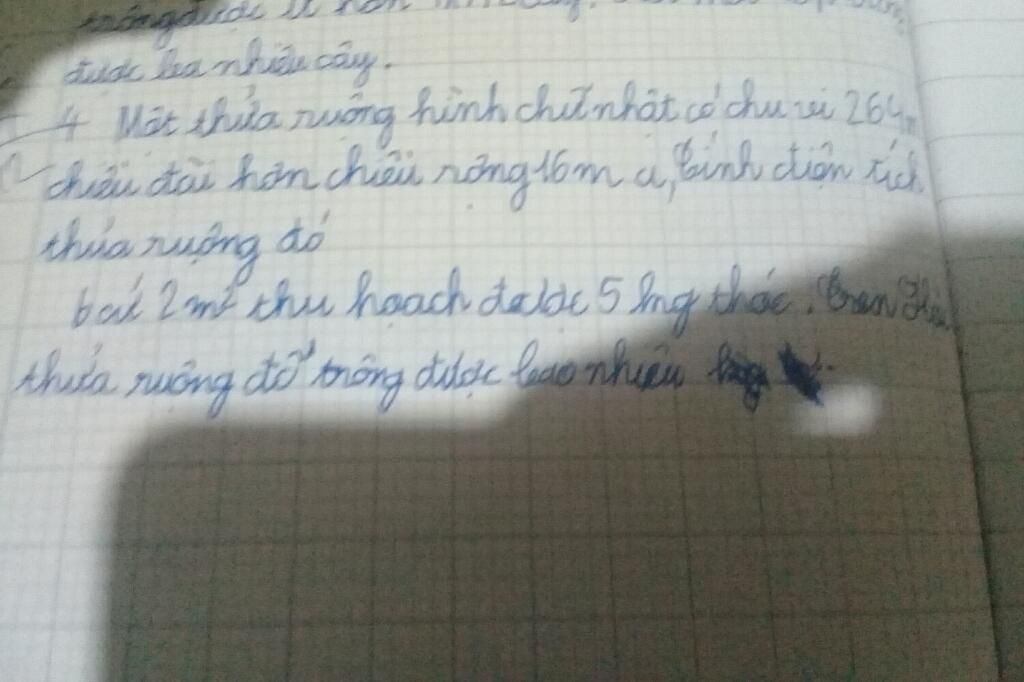 trồng được ít hơn
được bao nhiêu cây.
4 Một thửa ruộng hình chữ nhật có chu vi 264m
chiều dài hơn chiều rộng 16m a, tính diện tích
thửa ruộng đó
b cứ 2m² thu hoạch được 5 kg thóc. Trên
thửa ruộng đó trồng được bao nhiêu kg